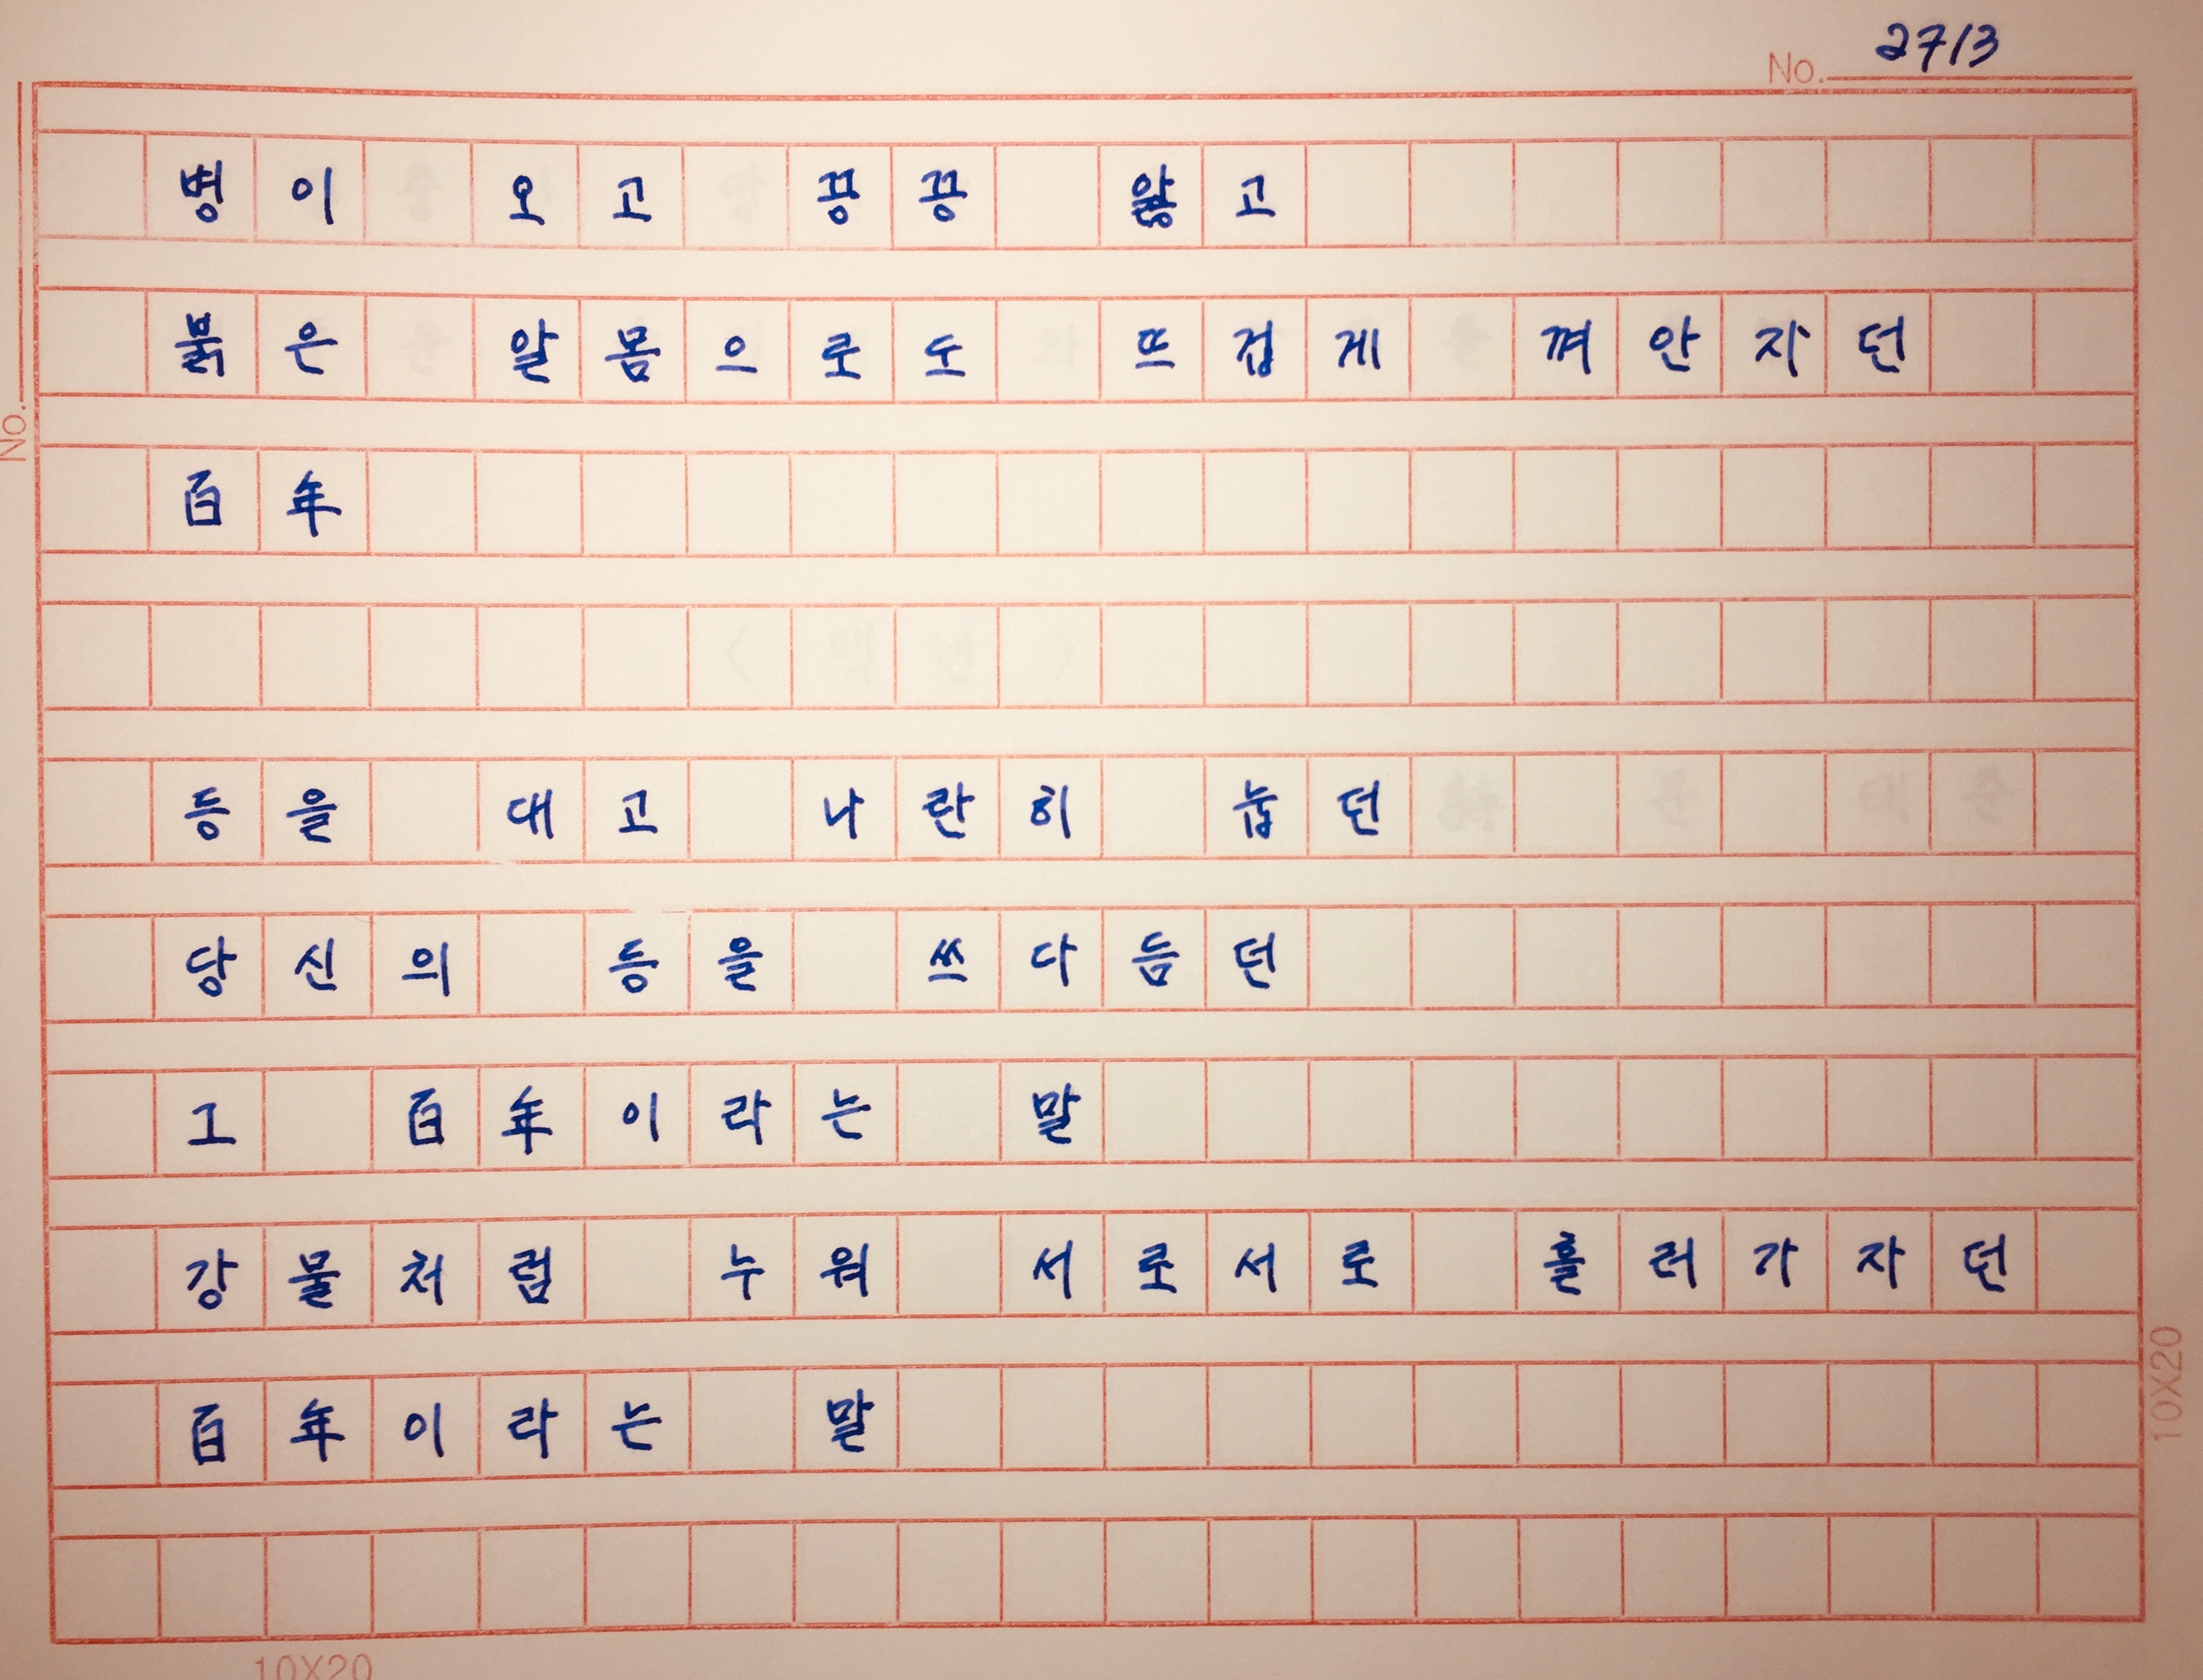 No. 2713
병이 오고 끙끙 앓고
붉은 알몸으로도 뜨겁게 껴안자던
百年
등을 대고 나란히 눕던
당신의 등을 쓰다듬던
그 百年이라는 말
강물처럼 누워 서로서로 흘러가자던
百年이라는 말
No.
10X20
10X20